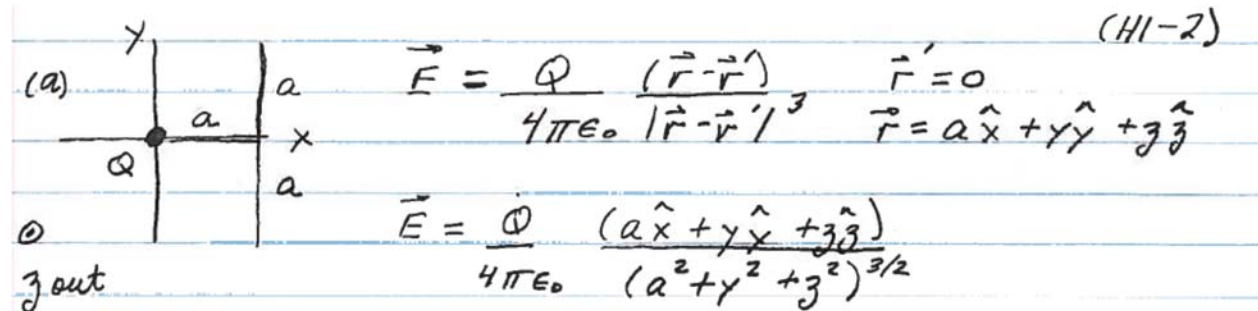 (H1-2)
(a)
y
a
a
x
Q
a
z out
E⃗ = Q/(4πϵ₀) (r⃗-r⃗')/|r⃗-r⃗'|³   r⃗' = 0
r⃗ = a x̂ + y ŷ + z ẑ
E⃗ = Q/(4πϵ₀) (a x̂ + y x̂ + z ẑ)/(a² + y² + z²)^(3/2)